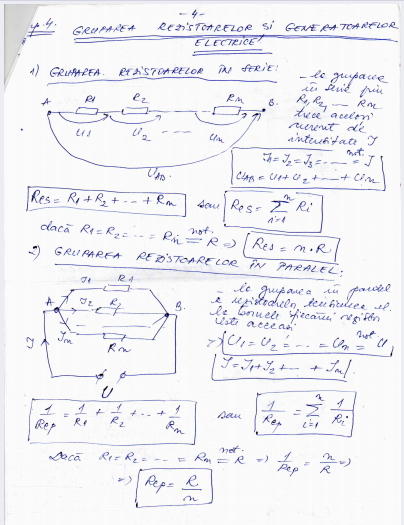 -4-
p.4. GRUPAREA REZISTOARELOR SI GENERATOARELOR
ELECTRICE!
1) GRUPAREA REZISTOARELOR ÎN SERIE:
- la gruparea
în serie prin
R1, R2, ... Rn
trece acelasi
curent de
intensitate I
A R1 R2 Rn B.
U1 U2 --- Un
UAB
I1=I2=I3=...... not. = I
UAB = U1+U2+...+Un
Res = R1+R2+...+Rn sau Res = n Σ i=1 Ri
dacă R1=R2=...=Rn not. = R => Res = n·R
2) GRUPAREA REZISTOARELOR ÎN PARALEL:
I1 R1
A I2 R2 B.
In Rn
I
U
- la gruparea în paralel
a rezistoarelor tensiunea el.
la bornele fiecărui rezistor
este aceeasi
=> U1=U2=...=Un not = U
I=I1+I2+...+In
1/Rep = 1/R1 + 1/R2 + ... + 1/Rn sau 1/Rep = n Σ i=1 1/Ri
Dacă R1=R2=...=Rn not. = R => 1/Rep = n/R =>
=> Rep = R/n